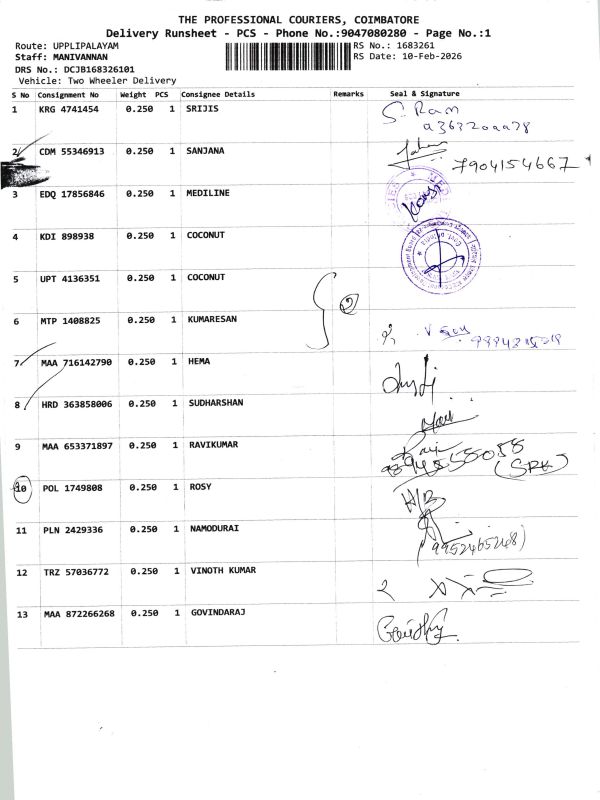 THE PROFESSIONAL COURIERS, COIMBATORE
Delivery Runsheet - PCS - Phone No.:9047080280 - Page No.:1
Route: UPPLIPALAYAM
RS No.: 1683261
Staff: MANIVANNAN
RS Date: 10-Feb-2026
DRS No.: DCJB168326101
Vehicle: Two Wheeler Delivery
S No Consignment No Weight PCS Consignee Details Remarks Seal & Signature
1 KRG 4741454 0.250 1 SRIJIS S. Ram
2 CDM 55346913 0.250 1 SANJANA 7904154667
3 EDQ 17856846 0.250 1 MEDILINE
4 KDI 898938 0.250 1 COCONUT
5 UPT 4136351 0.250 1 COCONUT
6 MTP 1408825 0.250 1 KUMARESAN
7 MAA 716142790 0.250 1 HEMA
8 HRD 363858006 0.250 1 SUDHARSHAN
9 MAA 653371897 0.250 1 RAVIKUMAR
10 POL 1749808 0.250 1 ROSY H/B
11 PLN 2429336 0.250 1 NAMODURAI
12 TRZ 57036772 0.250 1 VINOTH KUMAR
13 MAA 872266268 0.250 1 GOVINDARAJ